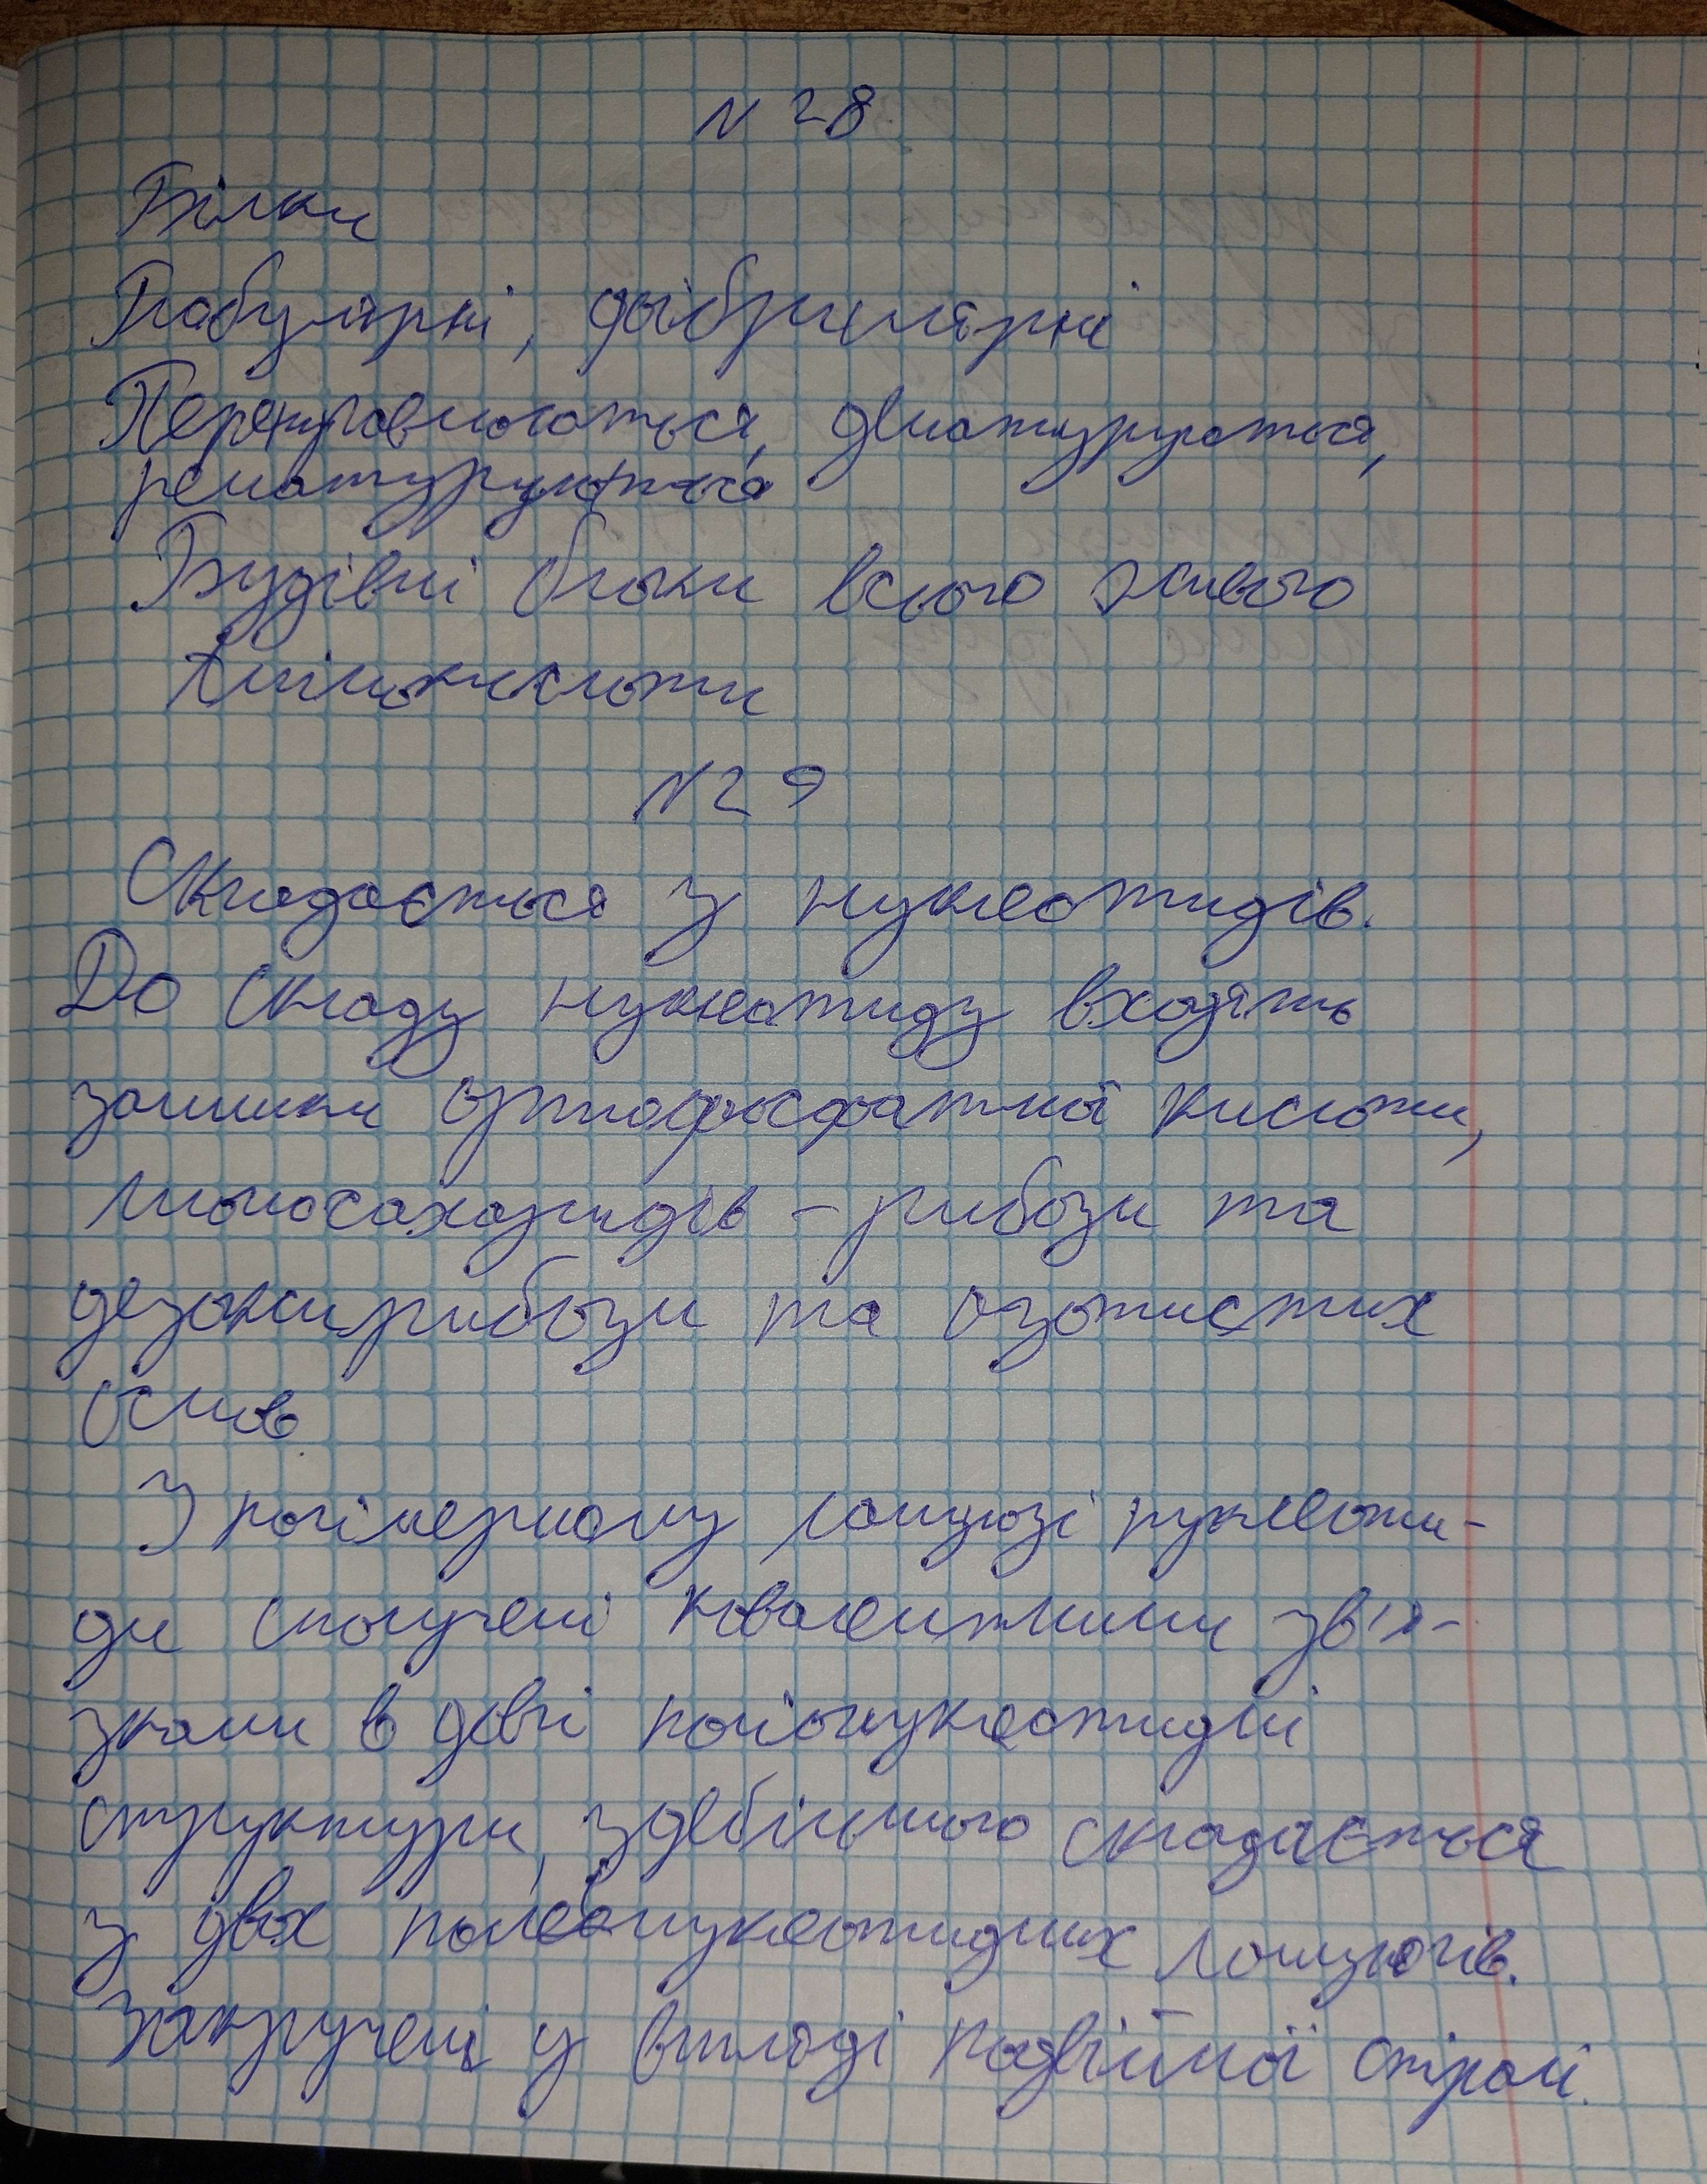 N 28
Білки
Глобулярні, фібрилярні
Перетравлюються, денатуруються,
ренатуруються
Будівні блоки всього живого
Амінокислоти
N 29
Складається з нуклеотидів.
До складу нуклеотиду входять
залишки ортофосфатної кислоти,
моносахаридів - рибози та
дезоксирибози та азотистих
основ
З полімерному ланцюзі нуклеоти-
ди сполучені ковалентними зв'я-
зками в дві полінуклеотидні
структури, здебільшого складається
з двох полінуклеотидних ланцюгів.
Закручені у вигляді подвійної спіралі.